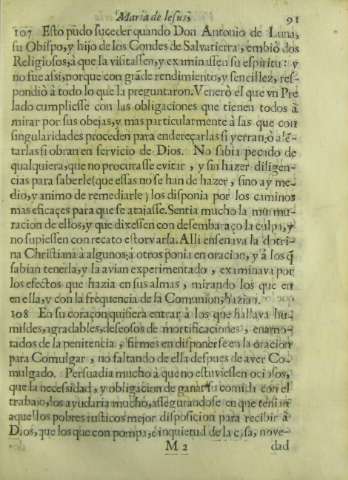 Maria de Iesus, 91
107 Esto pudo suceder quando Don Antonio de Luna,
su Obispo, y hijo de los Condes de Salvatierra, embiò dos
Religiosos, à que la visitassen, y examinassen su espiritu: y
no fue assi, porque con grãde rendimiento, y sencillez, res-
pondiò à todo lo que la preguntaron. Venerò el que vn Pre
lado cumpliesse con las obligaciones que tienen todos à
mirar por sus obejas, y mas particularmente à las que con
singularidades proceden para endereçarlas si yerran, ò alẽ-
tarlas si obran en servicio de Dios. No sabia pecado de
qualquiera, que no procurasse evitar, y sin hazer diligen-
cias para saberle (que essas no se han de hazer, sino ay me-
dio, y animo de remediarle) los disponia por los caminos
mas eficaçes para que se atajasse. Sentia mucho la murmu-
racion de ellos, y que dixessen con desembaraço la culpa, y
no supiessen con recato estorvarla. Alli enseñava la dotri-
na Christiana à algunos; à otros ponia en oracion, y à los q̃
sabian tenerla, y la avian experimentado, examinava por
los efectos que hazia en sus almas, mirando los que en
en ella, y con la frequencia de la Comunion, hazian.
108 En su coraçon quisiera entrar à los que hallava hu-
mildes, agradables, deseosos de mortificaciones, enamo-
rados de la penitencia, firmes en disponerse en la oracion
para Comulgar, no faltando de ella despues de aver Co-
mulgado. Persuadia mucho à que no estuviessen ociosos,
que la necesidad, y obligacion de ganar su comida con el
trabajo, los ayudaria mucho, assegurandose en que tenian
aquellos pobres rusticos mejor disposicion para recibir à
Dios, que los que con pompa, è inquietud de la casa, nove-
M 2 dad